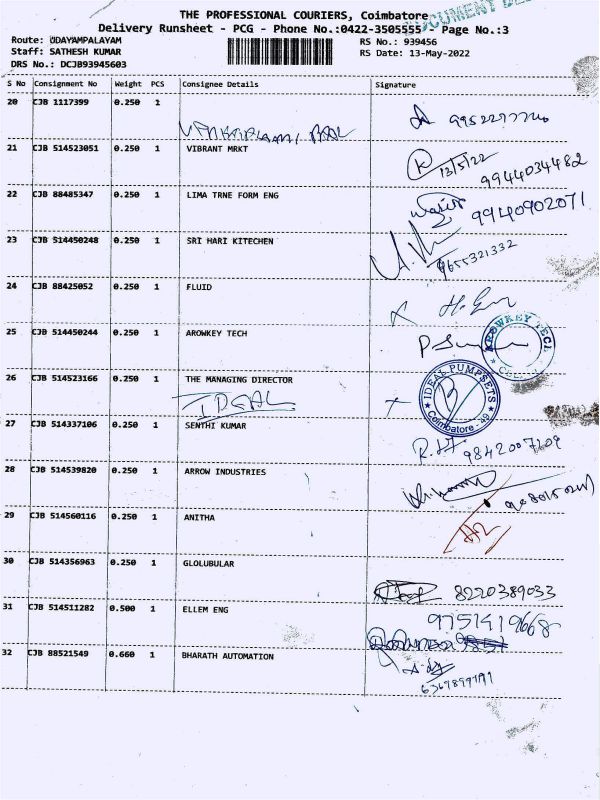 THE PROFESSIONAL COURIERS, Coimbatore
Delivery Runsheet - PCG - Phone No.:0422-3505555 Page No.:3
Route: UDAYAMPALAYAM RS No.: 939456
Staff: SATHESH KUMAR RS Date: 13-May-2022
DRS No.: DCJB93945603
S No Consignment No Weight PCS Consignee Details Signature
20 CJB 1117399 0.250 1
21 CJB 514523051 0.250 1 VIBRANT MRKT 13/5/22 9944034482
22 CJB 88485347 0.250 1 LIMA TRNE FORM ENG 9940902071
23 CJB 514450248 0.250 1 SRI HARI KITECHEN 9655321332
24 CJB 88425052 0.250 1 FLUID
25 CJB 514450244 0.250 1 AROWKEY TECH
26 CJB 514523166 0.250 1 THE MANAGING DIRECTOR
IDEAL
IDEAL PUMPSETS
Coimbatore - 49
27 CJB 514337106 0.250 1 SENTHI KUMAR 9842007209
28 CJB 514539820 0.250 1 ARROW INDUSTRIES
29 CJB 514560116 0.250 1 ANITHA
30 CJB 514356963 0.250 1 GLOLUBULAR 8220389033
31 CJB 514511282 0.500 1 ELLEM ENG 9751419668
32 CJB 88521549 0.660 1 BHARATH AUTOMATION